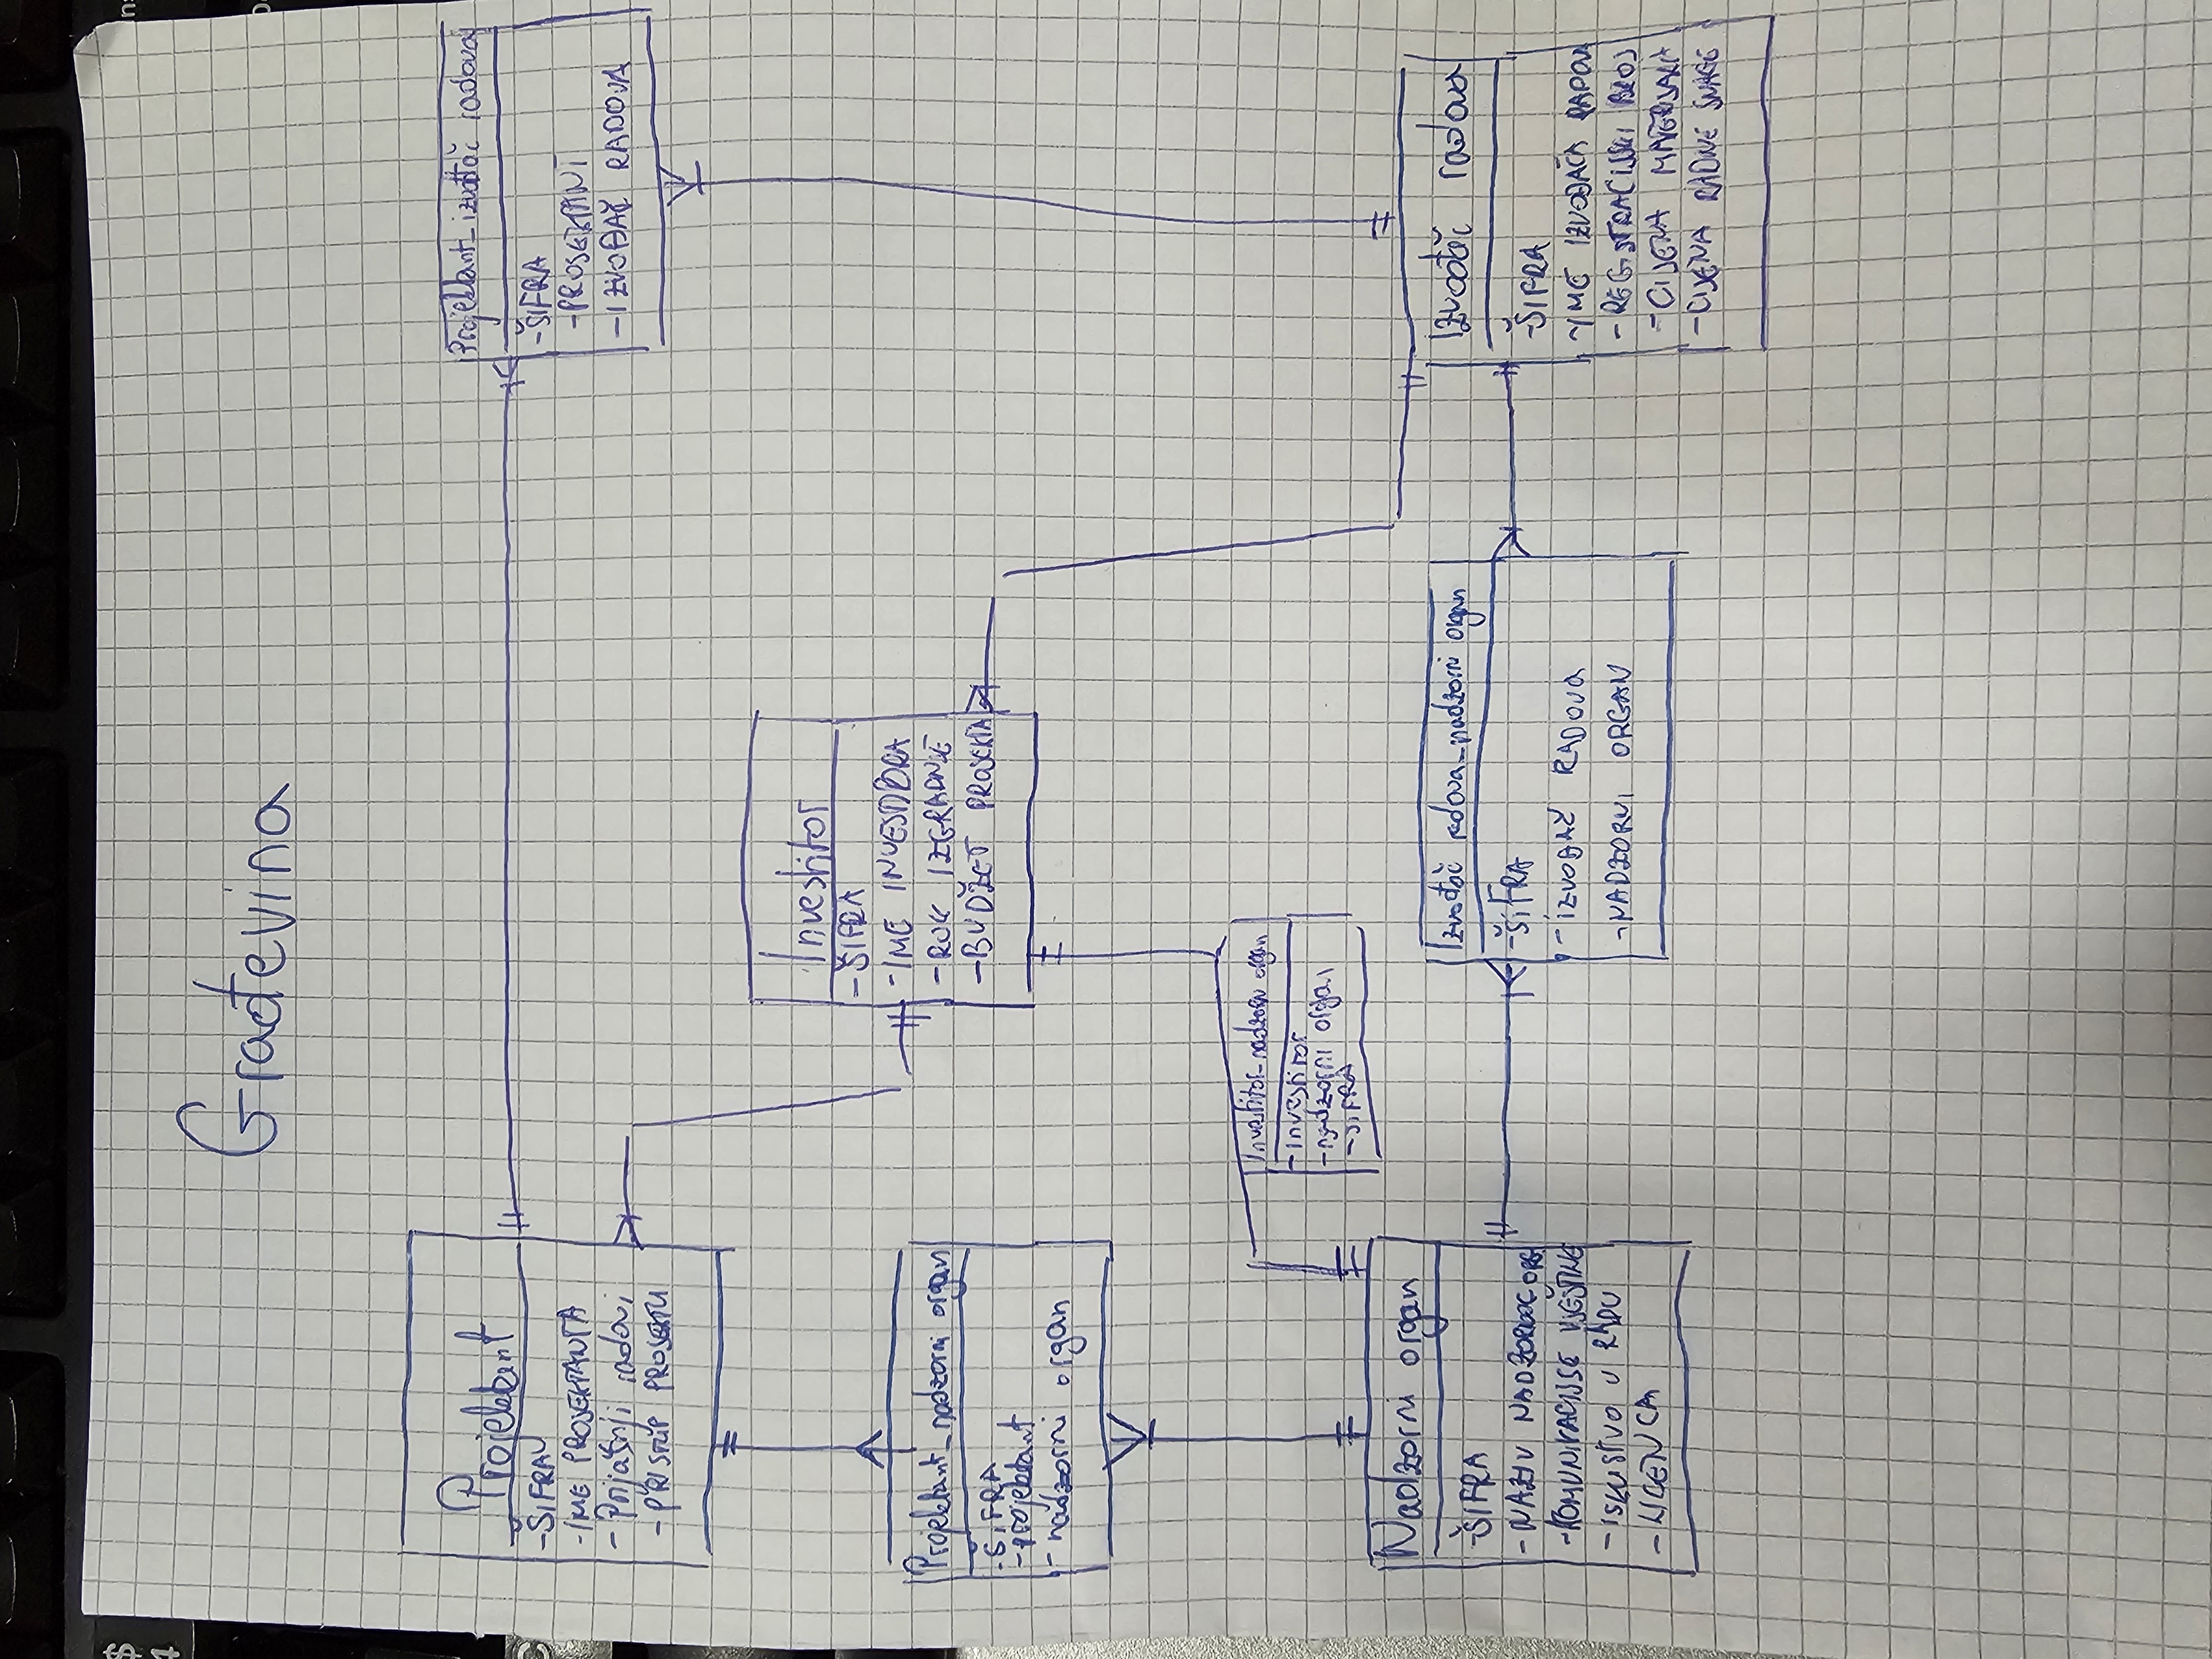 Građevina
Projektant
-ŠIFRA
-IME PROJEKTANTA
-Prijašnji radovi
-PRISTUP PROJEKTU
Projektant_izvođač radova
-ŠIFRA
-PROJEKTANT
-IZVOĐAČ RADOVA
Investitor
-ŠIFRA
-IME INVESTITORA
-ROK IZGRADNJE
-BUDŽET PROJEKTA
Projektant_nadzorni organ
-ŠIFRA
-projektant
-nadzorni organ
Investitor_nadzorni organ
-investitor
-nadzorni organ
-ŠIFRA
Nadzorni organ
-ŠIFRA
-NAZIV NADZORNOG ORG
-KOMUNIKACIJSKE VJEŠTINE
-ISKUSTVO U RADU
-LICENCA
Izvođač radova_nadzorni organ
-ŠIFRA
-IZVOĐAČ RADOVA
-NADZORNI ORGAN
Izvođač radova
-ŠIFRA
-IME IZVOĐAČA RADOVA
-REGISTRACIJSKI BROJ
-CIJENA MATERIJALA
-CIJENA RADNE SNAGE
$
4
C